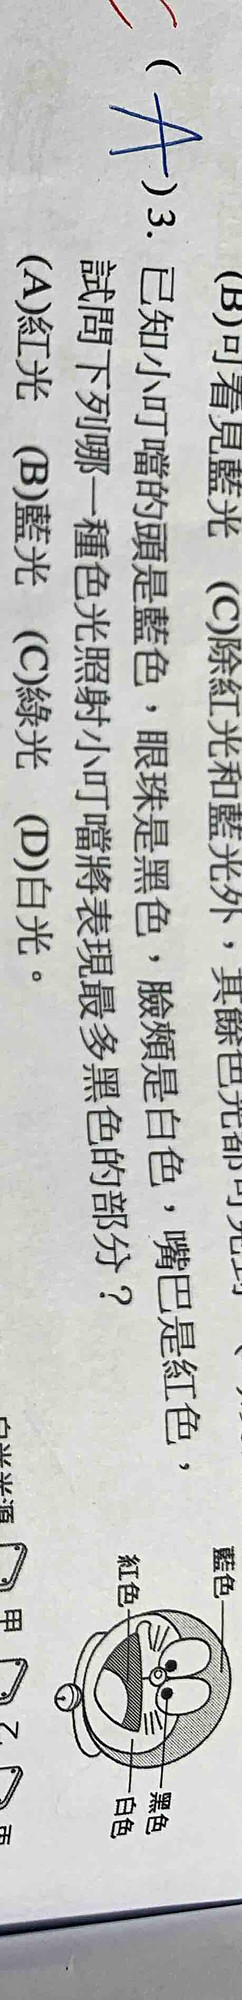 (B)可看見藍光 (C)除紅光和藍光外，其餘色光都可
(A)3. 已知小叮噹的頭是藍色，眼珠是黑色，臉頰是白色，嘴巴是紅色，
試問下列哪一種色光照射小叮噹將表現最多黑色的部分？
(A)紅光 (B)藍光 (C)綠光 (D)白光。
藍色
紅色
黑色
白色
白光光源
甲 乙 丙